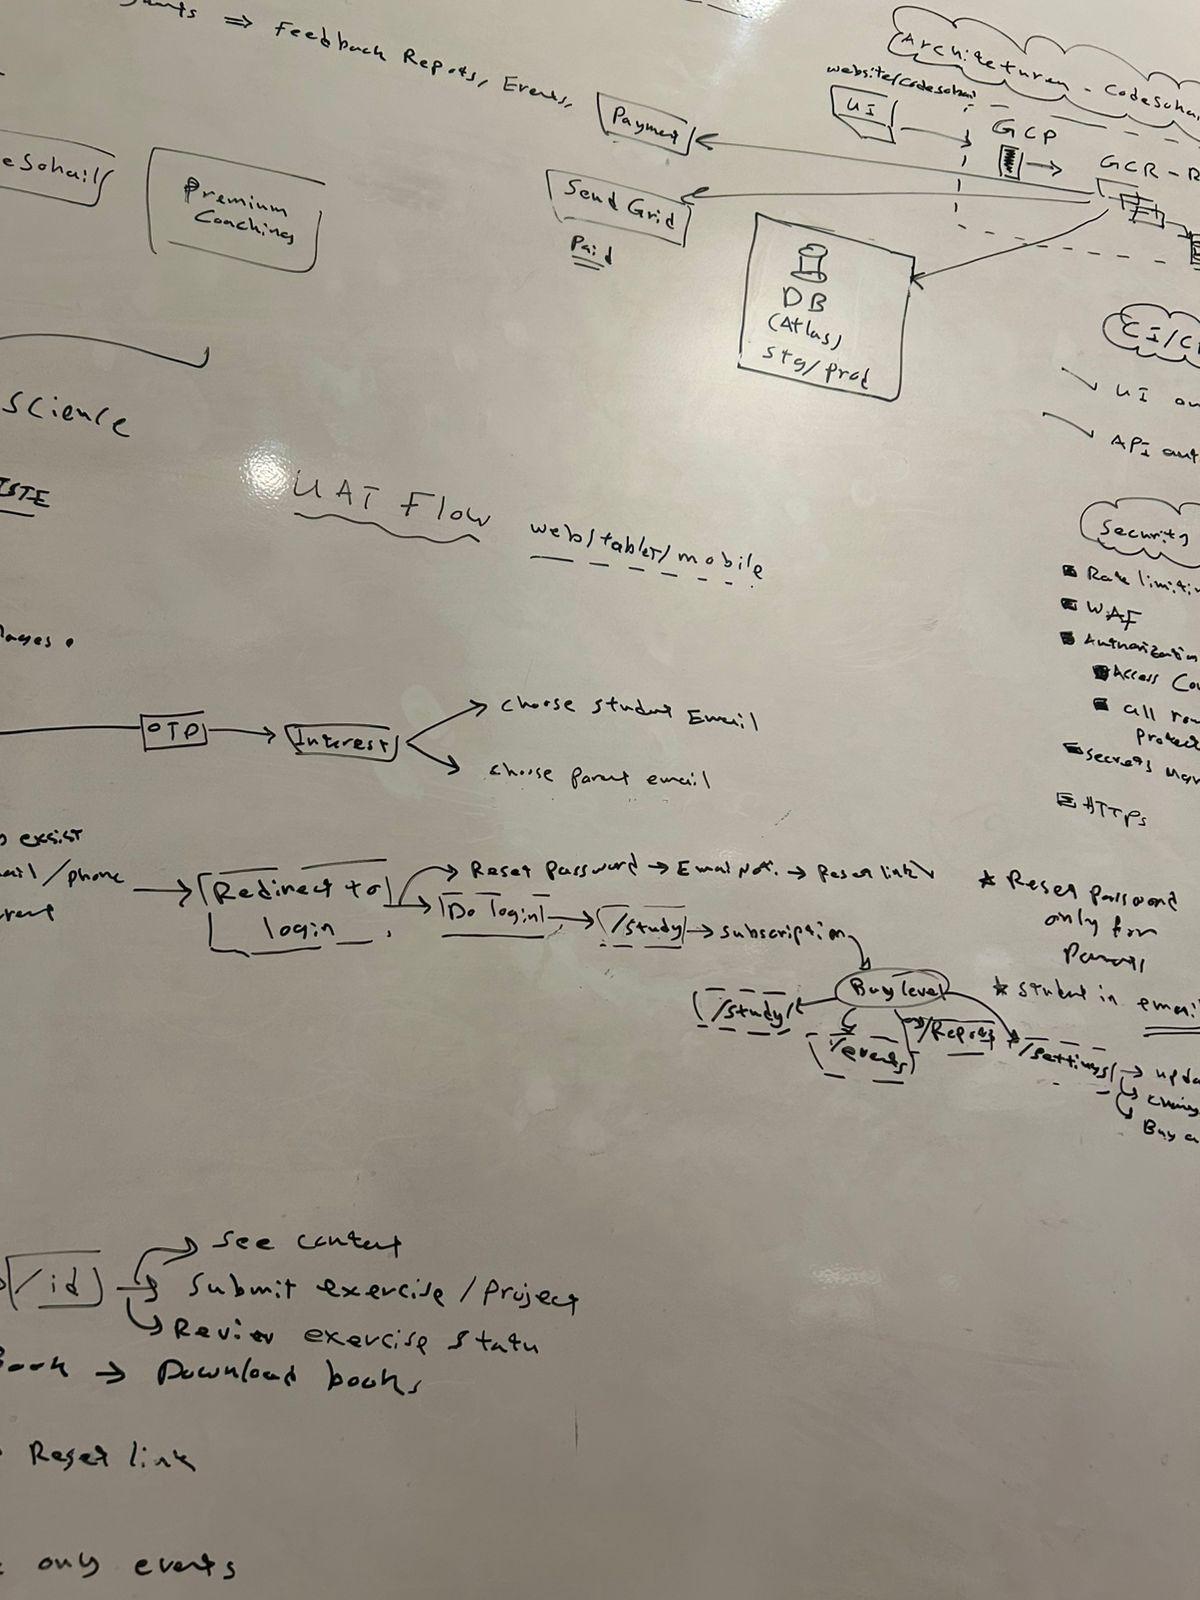 ⇒ Feedback Reports, Events,
Architecture - Codesohai
website/codesohai
UI
GCP
GCR - R
Payment
Send Grid
Paid
DB
(Atlas)
stg/prod
eSohail
Premium
Coaching
CI/C
UI au
API aut
science
ISTE
UAT Flow
web/tablet/mobile
Security
Rate limitin
WAF
Authorization
Access Co
all rou
protec
secrets Man
HTTPs
OTP → Interest
choose student Email
choose parent email
exsist
ail/phone → Redirect to
login
Reset password → Email Not. → Reset link
Do login → /study → subscription
Buy level
/study
/events
/Reports
/settings → upda
Buy a
* Reset password
only for
* student in email
/id
→ See content
→ Submit exercise/project
→ Review exercise statu
Book → Download books
Reset link
only events